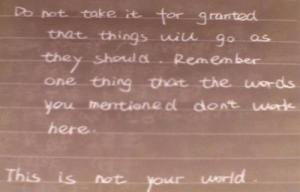 Do not take it for granted
that things will go as
they should. Remember
one thing that the words
you mentioned don't work
here.
This is not your world.